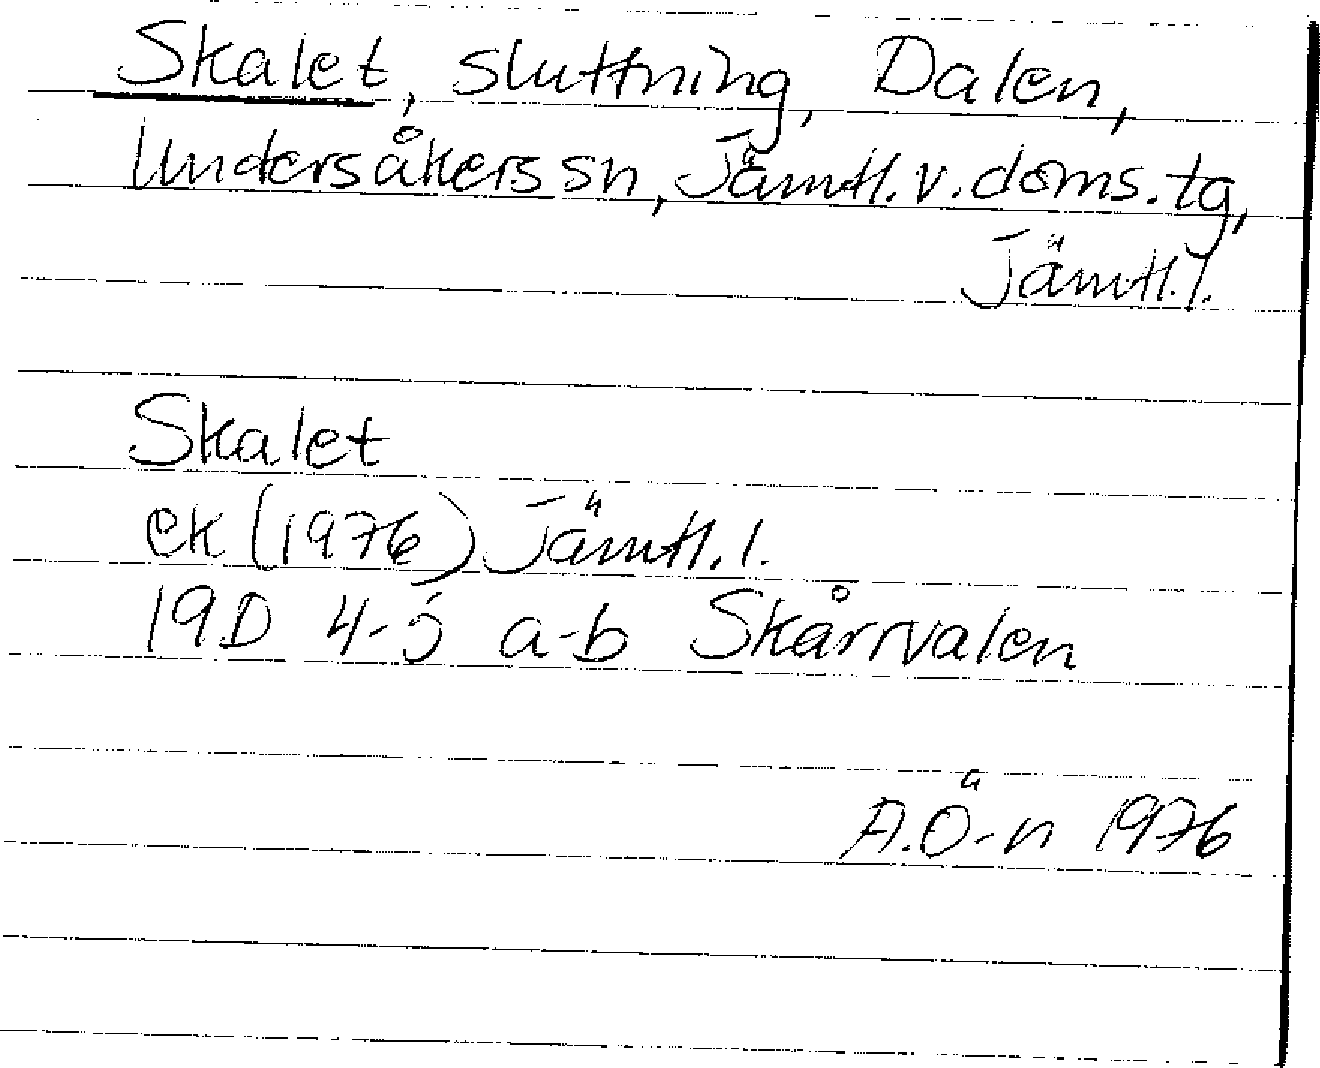 Skalet, sluttning, Dalen,
Undersåkers sn, Jämtl. v. doms. tg,
Jämtl. l.
Skalet
ek (1976) Jämtl. l.
19D 4-5 a-b Skårrvalen
A.Ö-n 1976